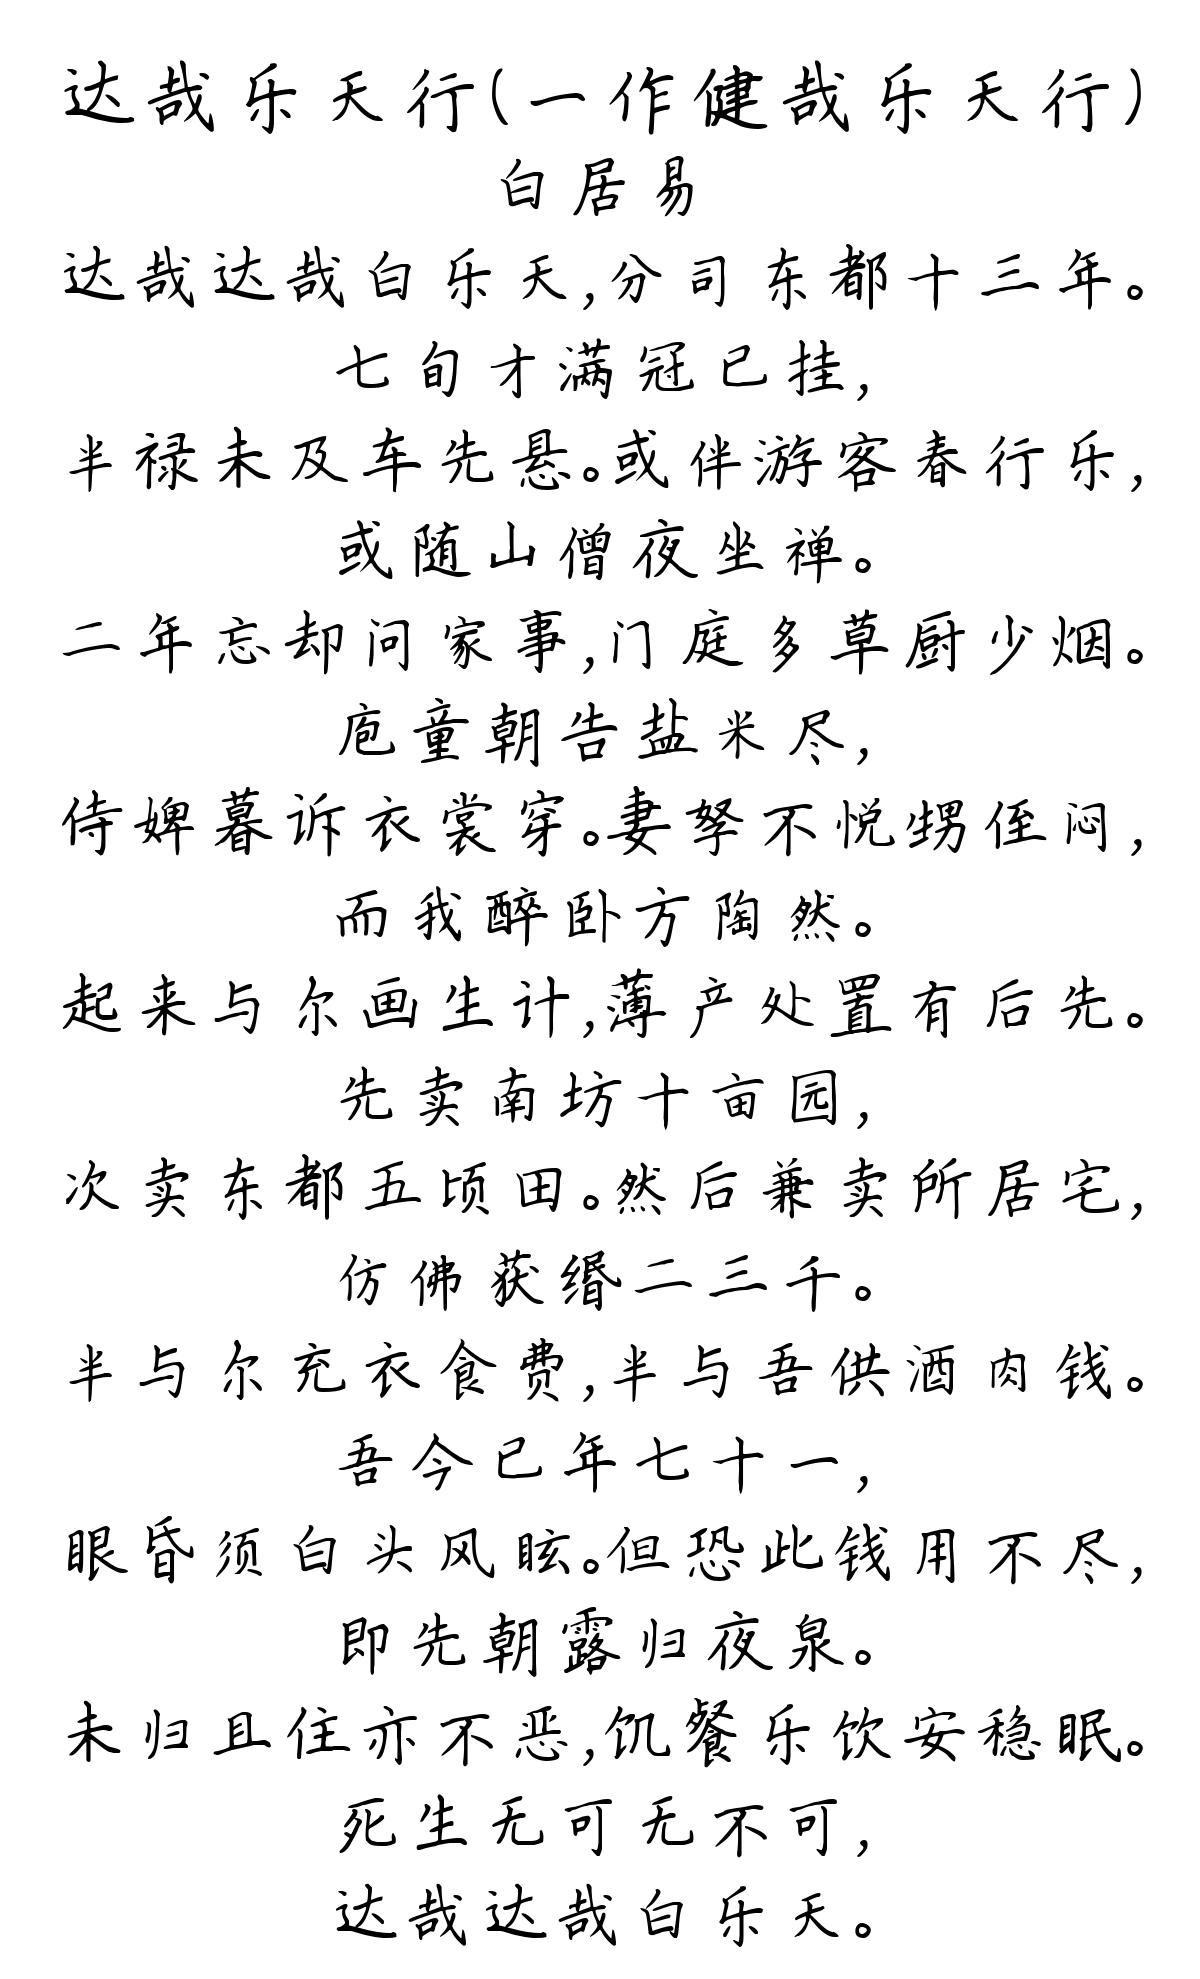 达哉乐天行(一作健哉乐天行)
白居易
达哉达哉白乐天,分司东都十三年。
七旬才满冠已挂,
半禄未及车先悬。或伴游客春行乐,
或随山僧夜坐禅。
二年忘却问家事,门庭多草厨少烟。
庖童朝告盐米尽,
侍婢暮诉衣裳穿。妻孥不悦甥侄闷,
而我醉卧方陶然。
起来与尔画生计,薄产处置有后先。
先卖南坊十亩园,
次卖东都五顷田。然后兼卖所居宅,
仿佛获缗二三千。
半与尔充衣食费,半与吾供酒肉钱。
吾今已年七十一,
眼昏须白头风眩。但恐此钱用不尽,
即先朝露归夜泉。
未归且住亦不恶,饥餐乐饮安稳眠。
死生无可无不可,
达哉达哉白乐天。